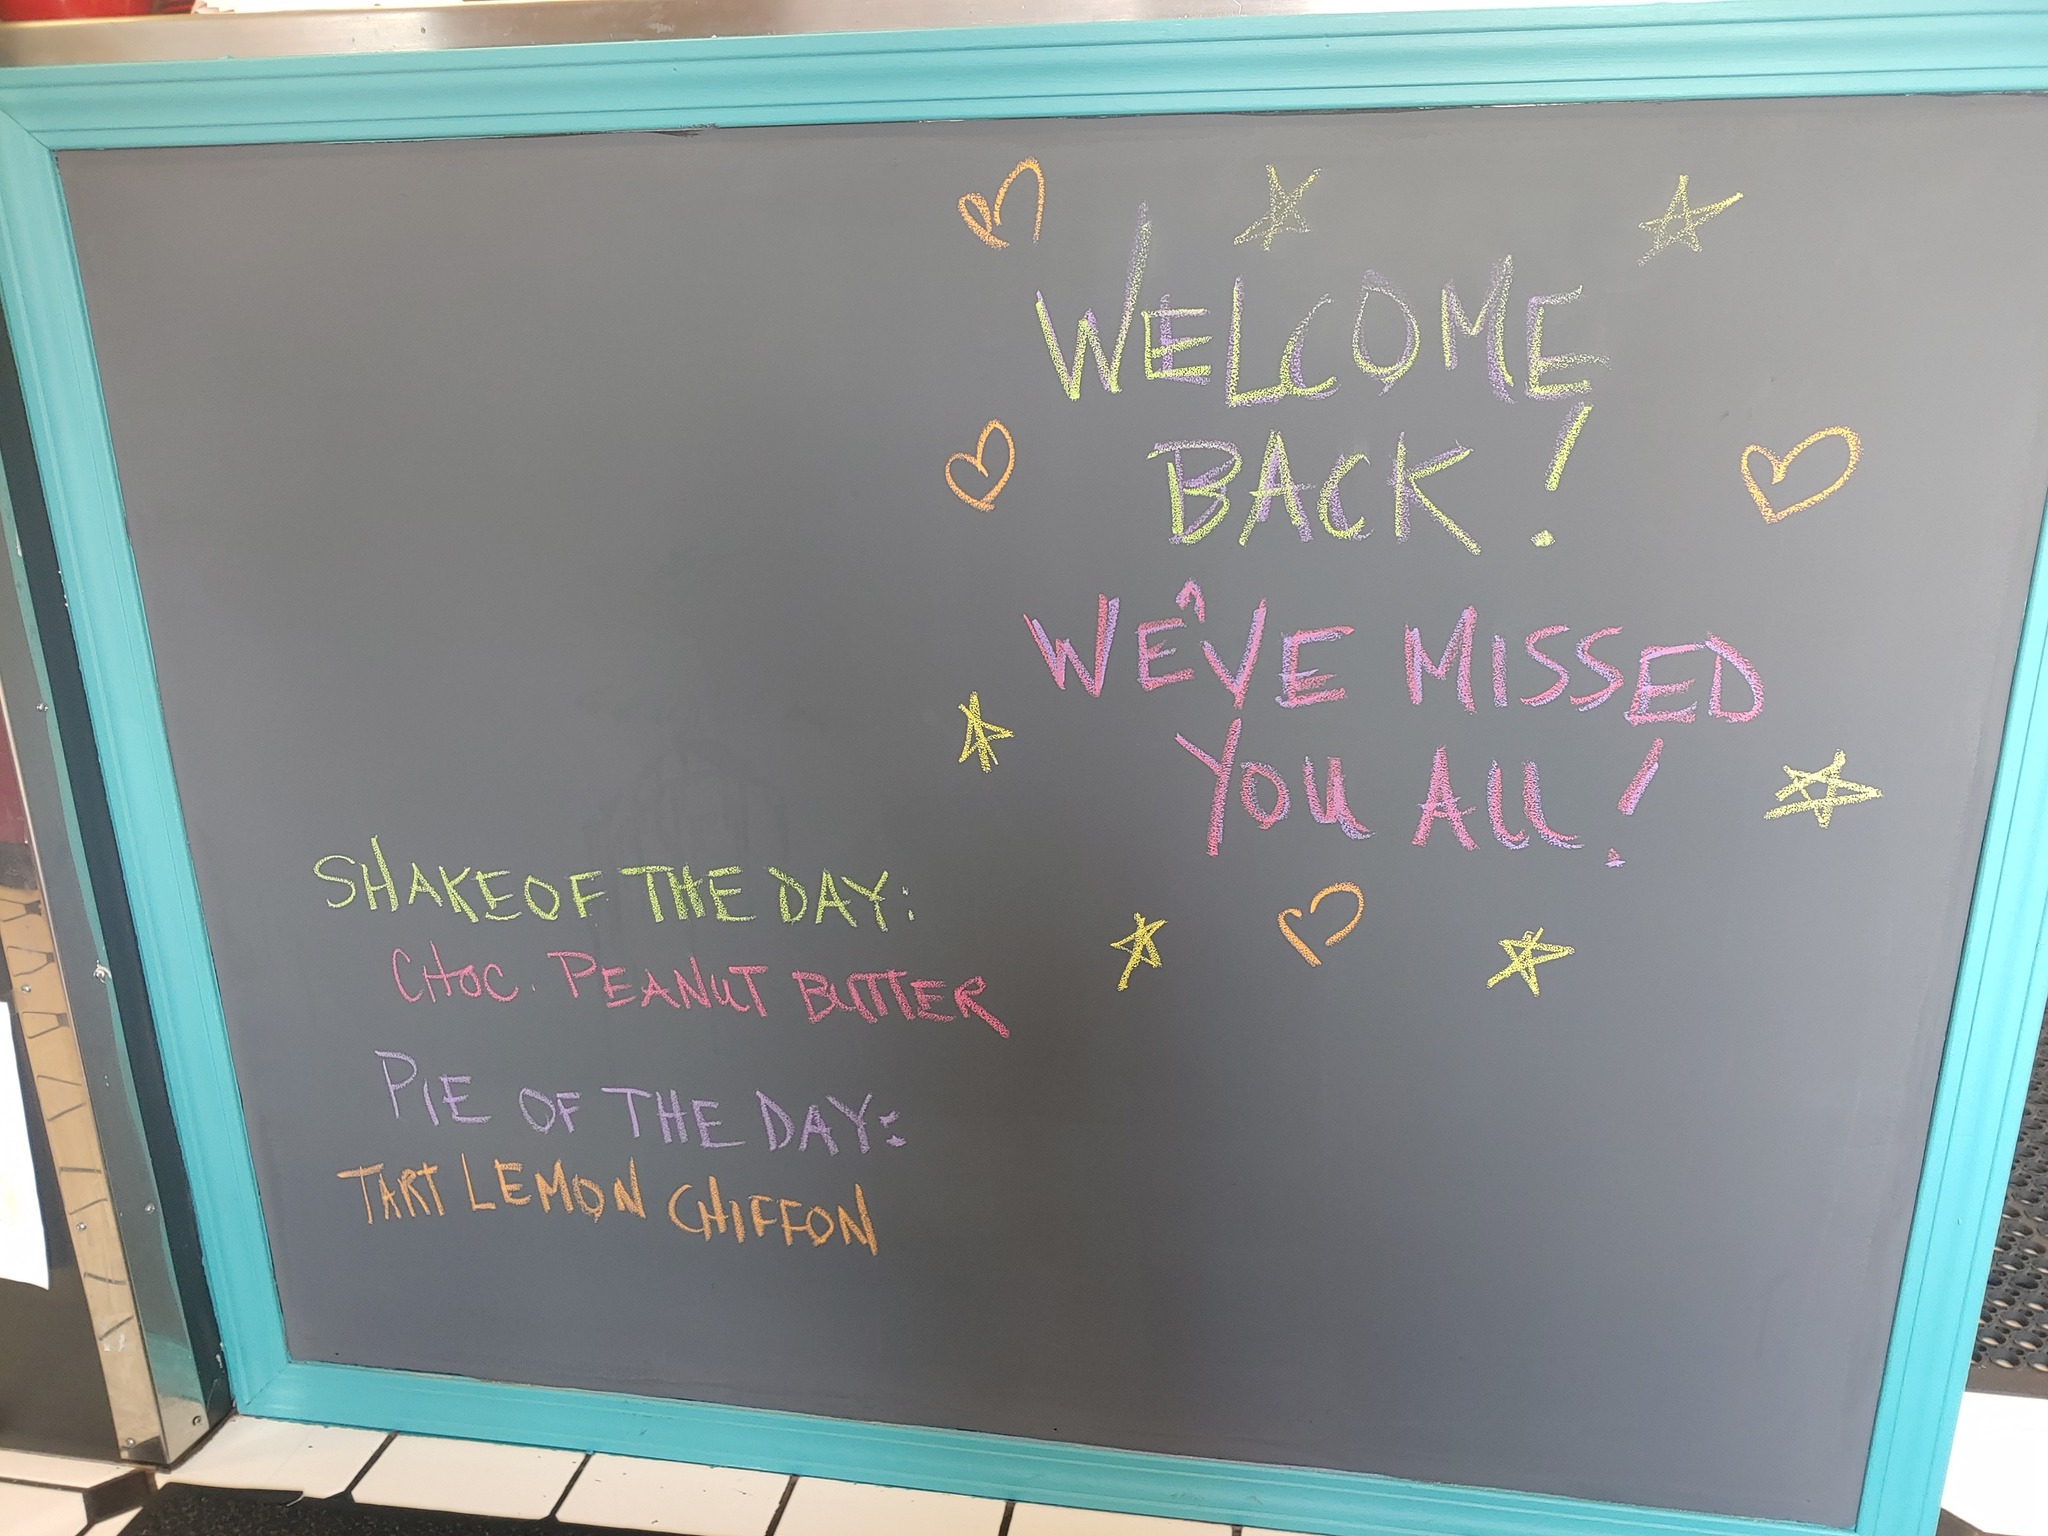 WELCOME
BACK!
WE'VE MISSED
YOU ALL!
SHAKE OF THE DAY:
CHOC. PEANUT BUTTER
PIE OF THE DAY:
TART LEMON CHIFFON